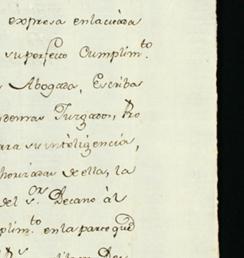 expresa en la citada
su perfecto Cumplim.to
Abogada, Escriba
demas Juzgados, Pro
para su inteligencia,
horizadas de ellas, la
del S.or Decano al
plim.to en la parte que